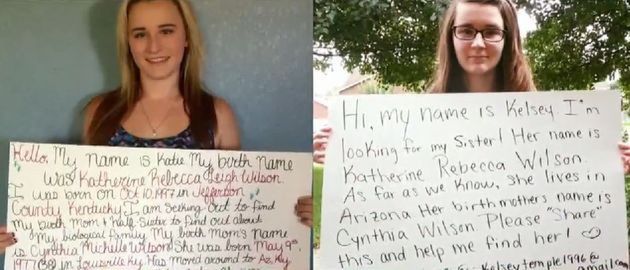 Hello, My name is Katie My birth name
was Katherine Rebecca Leigh Wilson.
I was born on Oct 10, 1997 in Jefferson
County Kentucky. I am Seeking Out to find
My birth Mom & half Sister to find out about
My biological family. My birth Mom's name
is Cynthia Michelle Wilson She was born May 9th
1977 in Louisville Ky. Has moved around to Az, Ky
Hi, my name is Kelsey I'm
looking for my Sister! Her name is
Katherine Rebecca Wilson.
As far as we know, she lives in
Arizona Her birthmothers name is
Cynthia Wilson Please "Share"
this and help me find her!
kelseytemple1996@
gmail.com